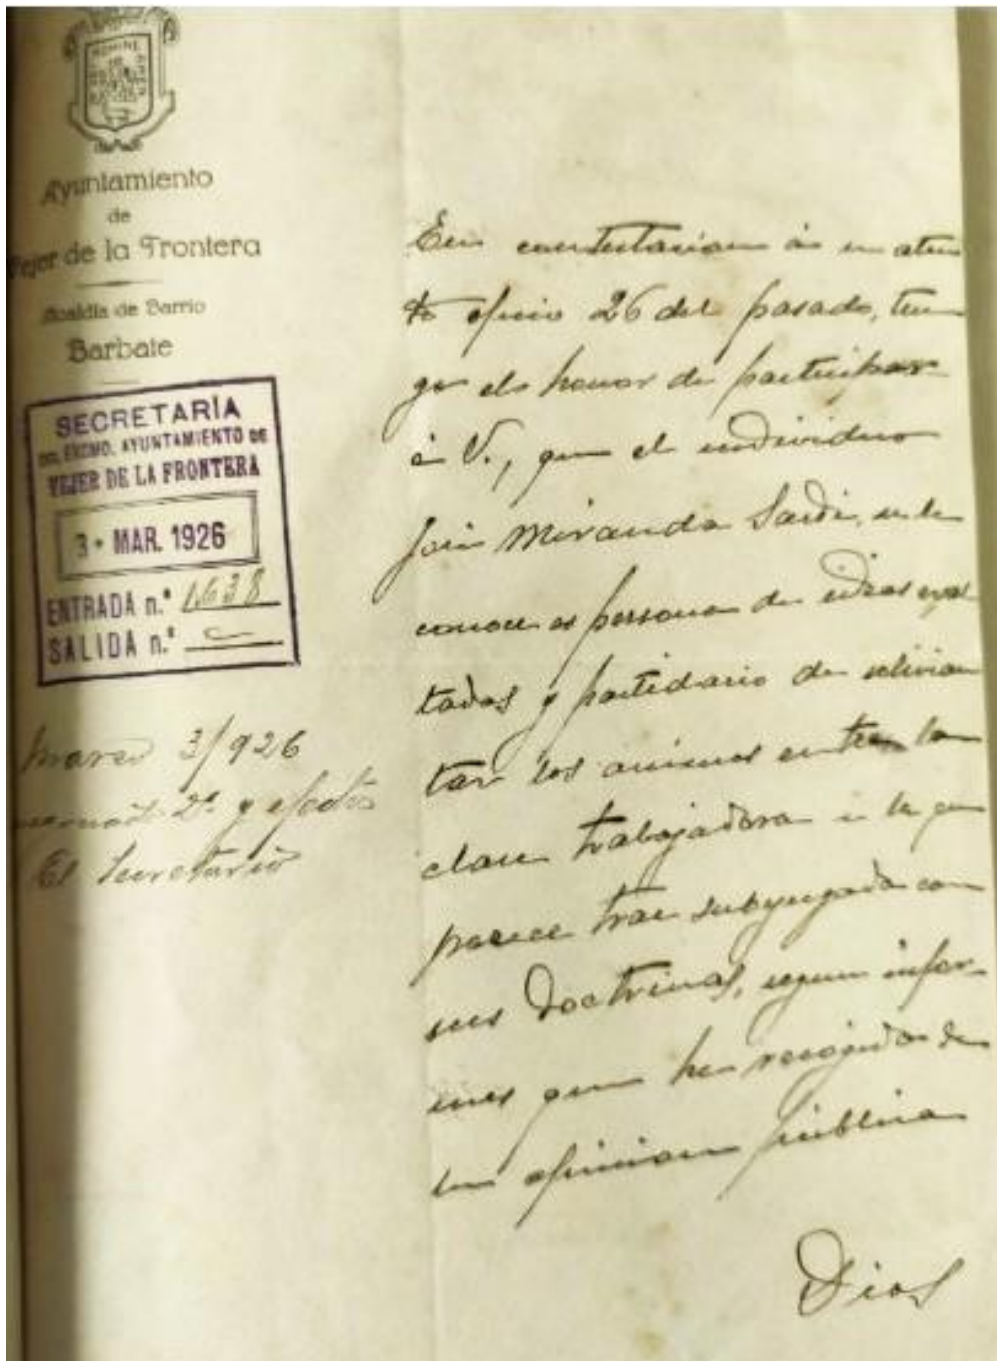 Ayuntamiento
de
Vejer de la Frontera
Alcaldía de Barrio
Barbate
SECRETARÍA
DEL EXCMO. AYUNTAMIENTO DE
VEJER DE LA FRONTERA
3 - MAR. 1926
ENTRADA n.º 1.638
SALIDA n.º
Marzo 3/926
2ª y efectos
El Secretario
En contestacion á su aten
to oficio 26 del pasado, ten
go el honor de participar
á V., que el individuo
José Miranda Sardi, se le
conoce es persona de ideas exal
tadas y partidario de solivian
tar los animos entre la
clase trabajadora a la que
parece trae subyugada con
sus doctrinas, segun infor-
mes que he recojido de
la opinion publica
Dios